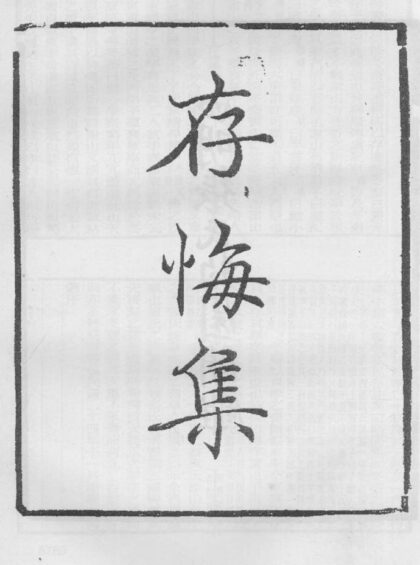 存悔集